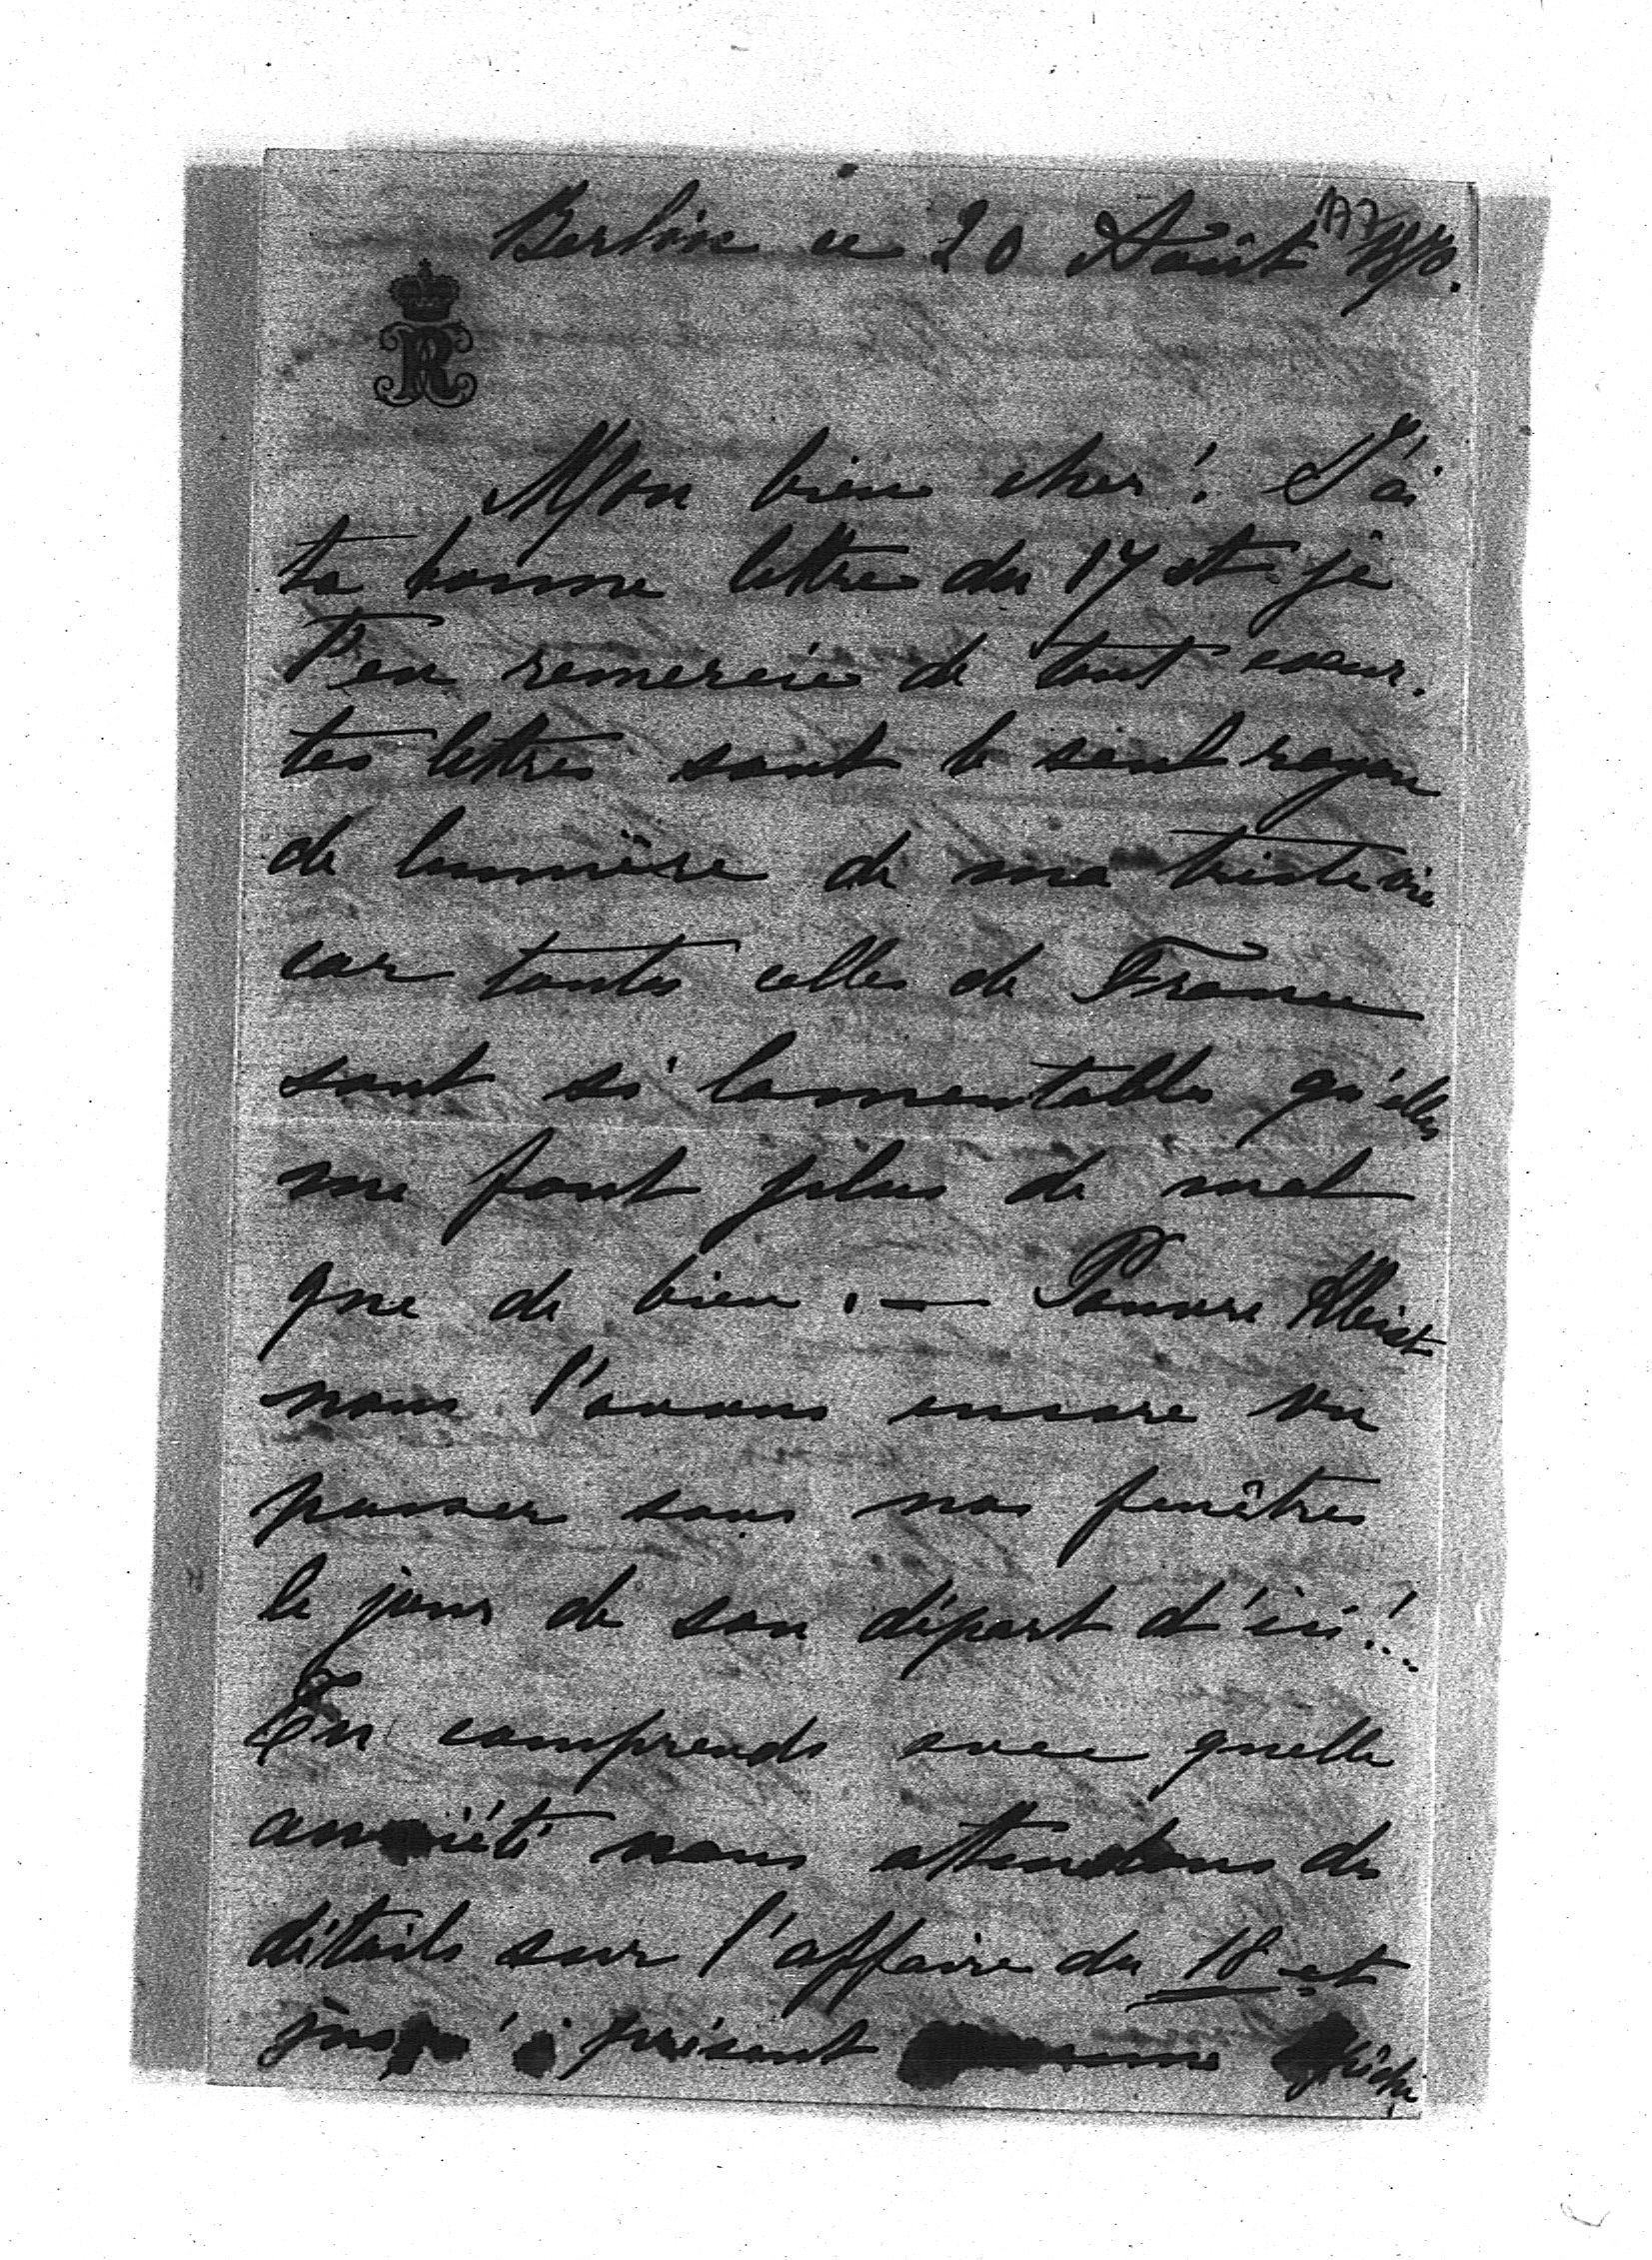 Berlin ce 20 Août 1870.
177
R
Mon bien cher! J'ai
ta bonne lettre du 17 et je
t'en remercie de tout coeur.
tes lettres sont le seul rayon
de lumière de ma triste vie
car toutes celles de France
sont si lamentables qu'elles
me font plus de mal
que de bien. — Pauvre Kleist
nous l'avons encore vu
passer sous nos fenêtres
le jour de son départ d'ici!.
Tu comprends avec quelle
anxiété nous attendons des
détails sur l'affaire du 18 et
jusqu'à présent aucune